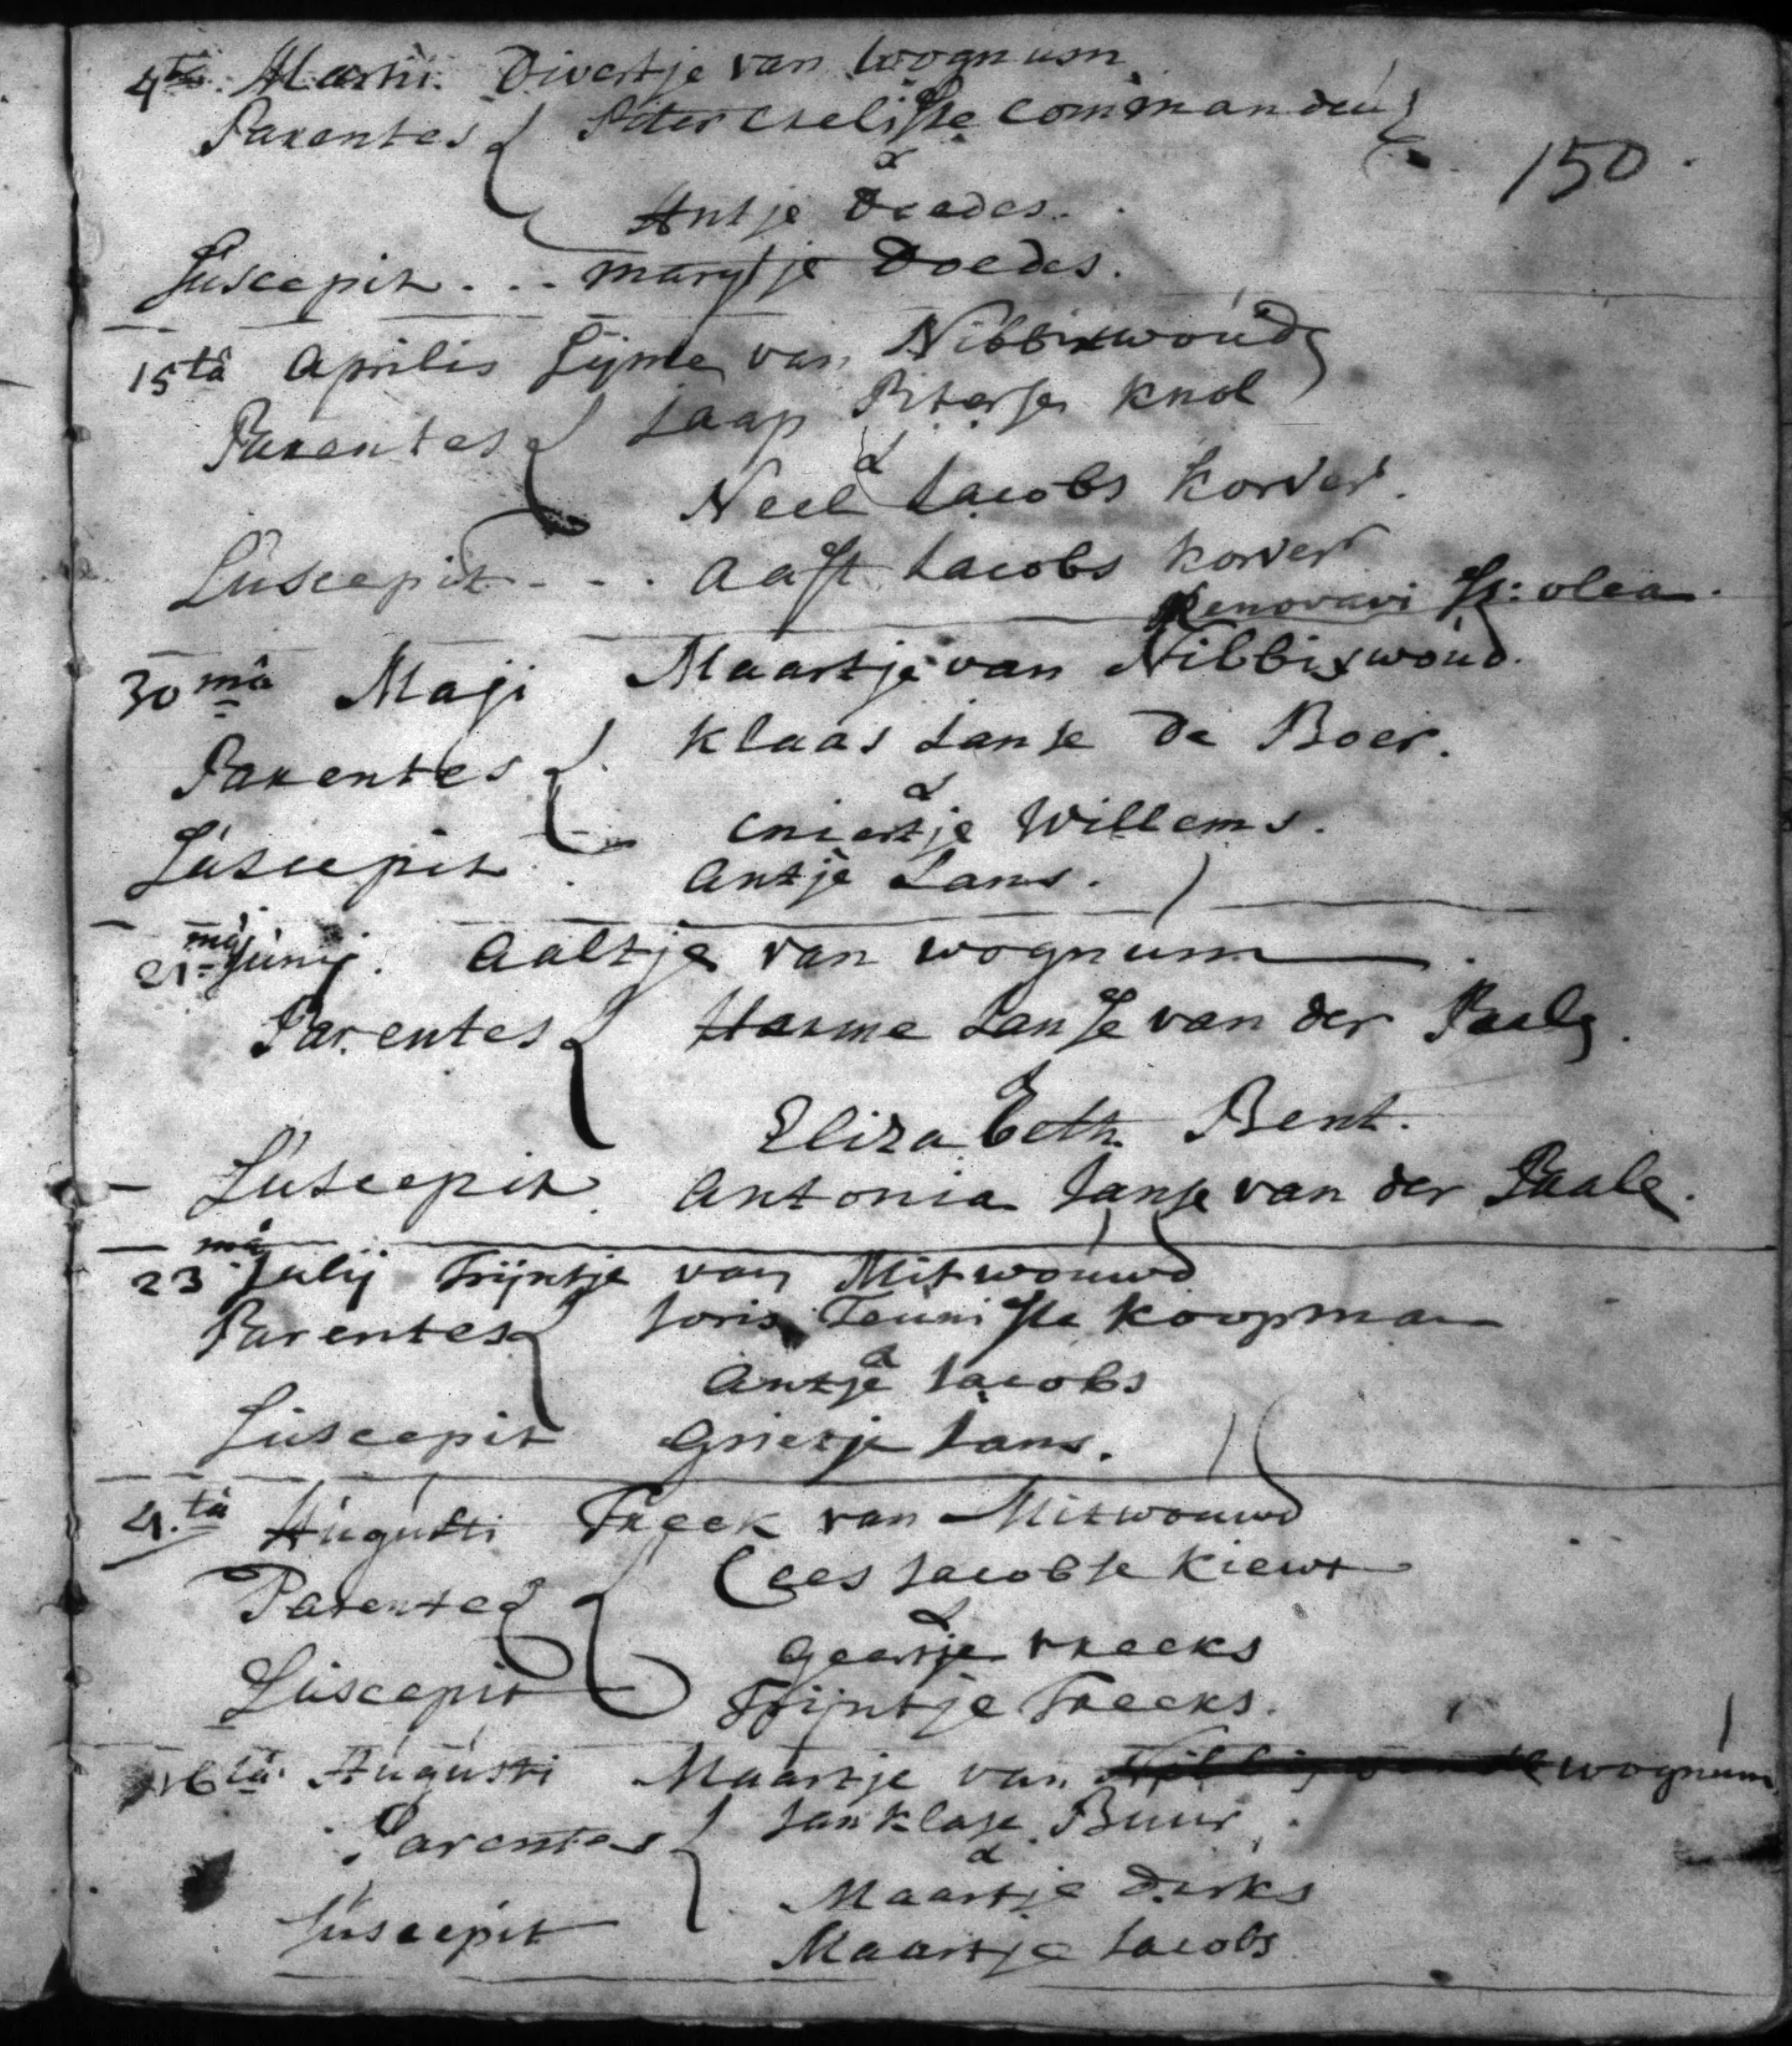 4ta Martii. Divertje van wognum
Parentes Piter Chelisse Commandeu
150.
&
Antje Doedes.
Suscepit ... marytje Doedes.
15ta aprilis Sijme van Nibbixwoud
Parentes Jaap Piterse Knol
&
Neel Jacobs Korver.
Suscepit - - . aaft Jacobs Korver
Renovavi Ss: olea.
30ma Maji Maartje van Nibbixwoud.
Parentes Klaas Janse De Boer.
&
Cniertje Willems.
Suscepit. antje Jans.
21ma Junij. aaltje van wognum
Parentes Harme Janse van der Paale.
&
Elizabeth Bent.
Suscepit. antonia Janse van der Paale.
23ma Julij Trijntje van Mitwouwd
Parentes Joris Teunisse Koopman
&
antje Jacobs
Suscepit Grietje Jans.
4.ta Augusti Freek van Mitwouwd
Parentes Cees Jacobse Kiewt
&
Geertje Freeks
Suscepit Trijntje Freeks.
16ta Augusti Maartje van wognum
Parentes Jan Klase Buur.
&
Maartje Dirks
Suscepit Maartje Jacobs